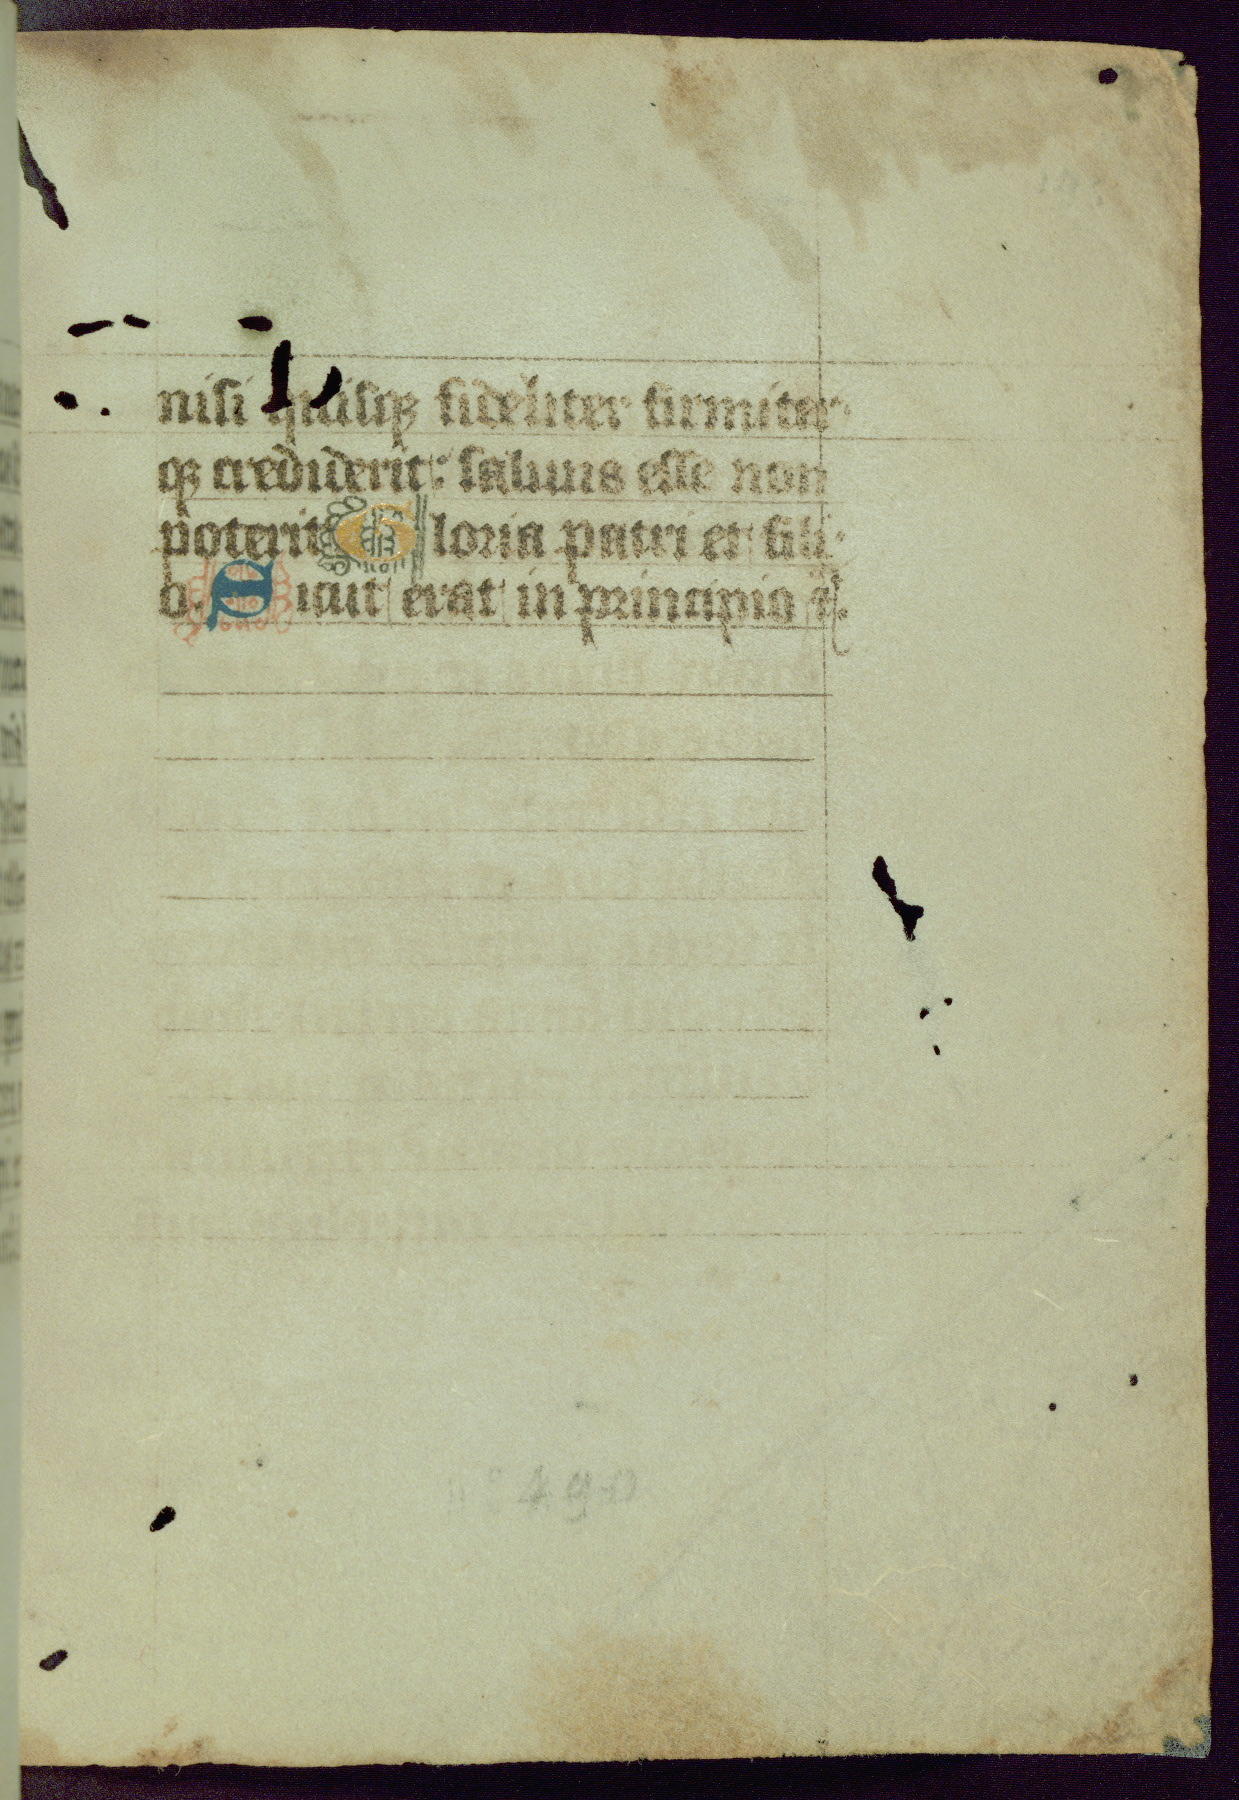 nisi quisqꝫ fideliter firmiter
qꝫ crediderit: saluus esse non
poterit Gloria patri et fili
o. Sicut erat in principio ⁊c̄.
n° 490